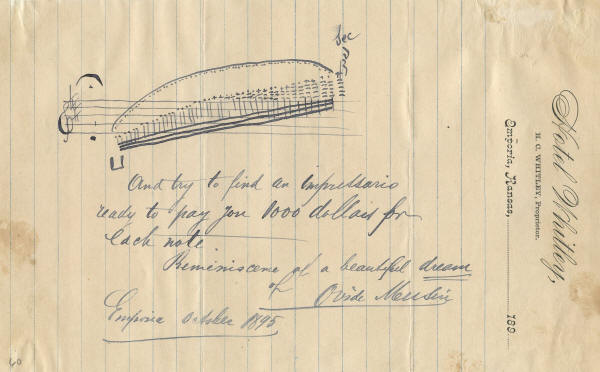 Sec
And try to find an impressario
ready to pay you 1000 dollars for
each note.
Reminiscene of a beautiful dream
of Ovide Musin
Emporia October 1895
Hotel Whitley,
H. C. WHITLEY, Proprietor.
Emporia, Kansas,
189
60